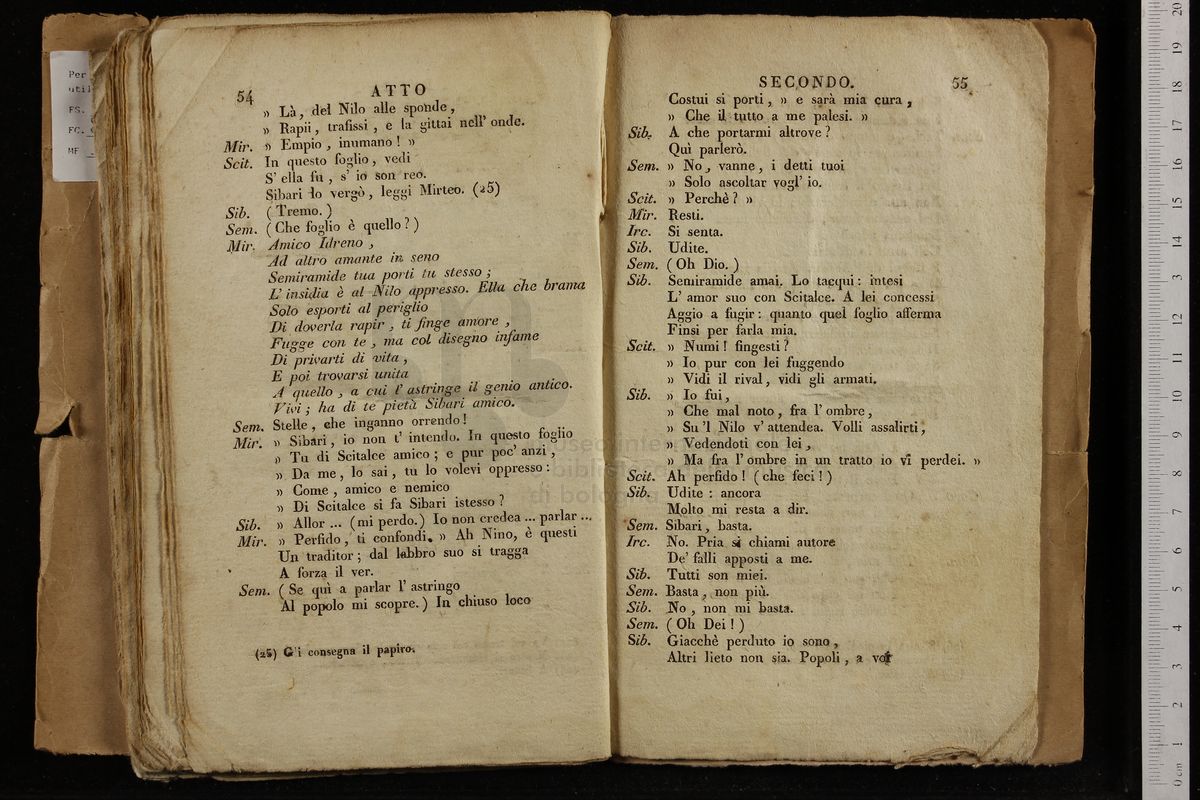 Per
util
FS.
FC.
MF
54
ATTO
» Là, del Nilo alle sponde,
» Rapii, trafissi, e la gittai nell' onde.
Mir. » Empio, inumano! »
Scit. In questo foglio, vedi
S' ella fu, s' io son reo.
Sibari lo vergò, leggi Mirteo. (25)
Sib. (Tremo.)
Sem. (Che foglio è quello?)
Mir. Amico Idreno,
Ad altro amante in seno
Semiramide tua porti tu stesso;
L' insidia è al Nilo appresso. Ella che brama
Solo esporti al periglio
Di doverla rapir, ti finge amore,
Fugge con te, ma col disegno infame
Di privarti di vita,
E poi trovarsi unita
A quello, a cui l' astringe il genio antico.
Vivi; ha di te pietà Sibari amico.
Sem. Stelle, che inganno orrendo!
Mir. » Sibari, io non t' intendo. In questo foglio
» Tu di Scitalce amico; e pur poc' anzi,
» Da me, lo sai, tu lo volevi oppresso:
» Come, amico e nemico
» Di Scitalce si fa Sibari istesso?
Sib. » Allor ... (mi perdo.) Io non credea ... parlar ...
Mir. » Perfido, ti confondi. » Ah Nino, è questi
Un traditor; dal labbro suo si tragga
A forza il ver.
Sem. (Se quì a parlar l' astringo
Al popolo mi scopre.) In chiuso loco
(25) Gli consegna il papiro.
SECONDO.
55
Costui si porti, » e sarà mia cura,
» Che il tutto a me palesi. »
Sib. A che portarmi altrove?
Quì parlerò.
Sem. » No, vanne, i detti tuoi
» Solo ascoltar vogl' io.
Scit. » Perchè? »
Mir. Resti.
Irc. Si senta.
Sib. Udite.
Sem. (Oh Dio.)
Sib. Semiramide amai. Lo tacqui: intesi
L' amor suo con Scitalce. A lei concessi
Aggio a fugir: quanto quel foglio afferma
Finsi per farla mia.
Scit. » Numi! fingesti?
» Io pur con lei fuggendo
» Vidi il rival, vidi gli armati.
Sib. » Io fui,
» Che mal noto, fra l' ombre,
» Su 'l Nilo v' attendea. Volli assalirti,
» Vedendoti con lei,
» Ma fra l' ombre in un tratto io vi perdei. »
Scit. Ah perfido! (che feci!)
Sib. Udite: ancora
Molto mi resta a dir.
Sem. Sibari, basta.
Irc. No. Pria si chiami autore
De' falli apposti a me.
Sib. Tutti son miei.
Sem. Basta, non più.
Sib. No, non mi basta.
Sem. (Oh Dei!)
Sib. Giacchè perduto io sono,
Altri lieto non sia. Popoli, a voi